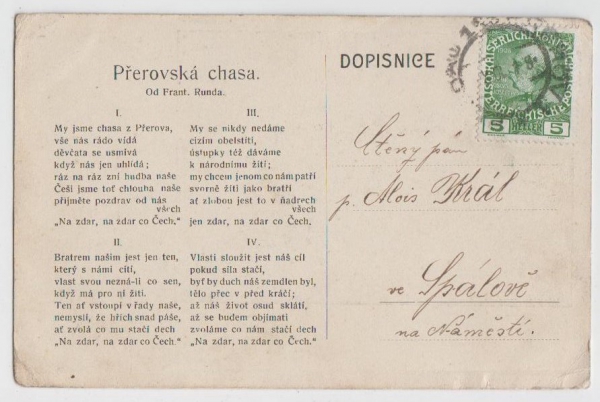 Přerovská chasa.
Od Frant. Runda.
I.
My jsme chasa z Přerova,
vše nás rádo vidá
děvčata se usmívá
když nás jen uhlídá;
ráz na ráz zní hudba naše
Češi jsme toť chlouba naše
přijměte pozdrav od nás
všech
„Na zdar, na zdar co Čech."
II.
Bratrem naším jest jen ten,
který s námi cítí,
vlast svou nezná-li co sen,
když má pro ni žíti.
Ten ať vstoupí v řady naše,
nemyslí, že hřích snad páše,
ať zvolá co mu stačí dech
„Na zdar, na zdar co Čech."
III.
My se nikdy nedáme
cizím obelstíti,
ústupky též dáváme
k národnímu žití;
my chcem jenom co nám patří
svorně žíti jako bratři
ať zlobou jest to v ňadrech
všech
jen zdar, na zdar co Čech.
IV.
Vlasti sloužit jest náš cíl
pokud síla stačí,
byť by duch náš zemdlen byl,
tělo přec v před kráčí;
až náš život osud sklátí,
až se budem objímati
zvoláme co nám stačí dech
„Na zdar, na zdar co Čech."
DOPISNICE
5 5
Ctěný pán
p. Alois Král
ve Spálově
na Náměstí.